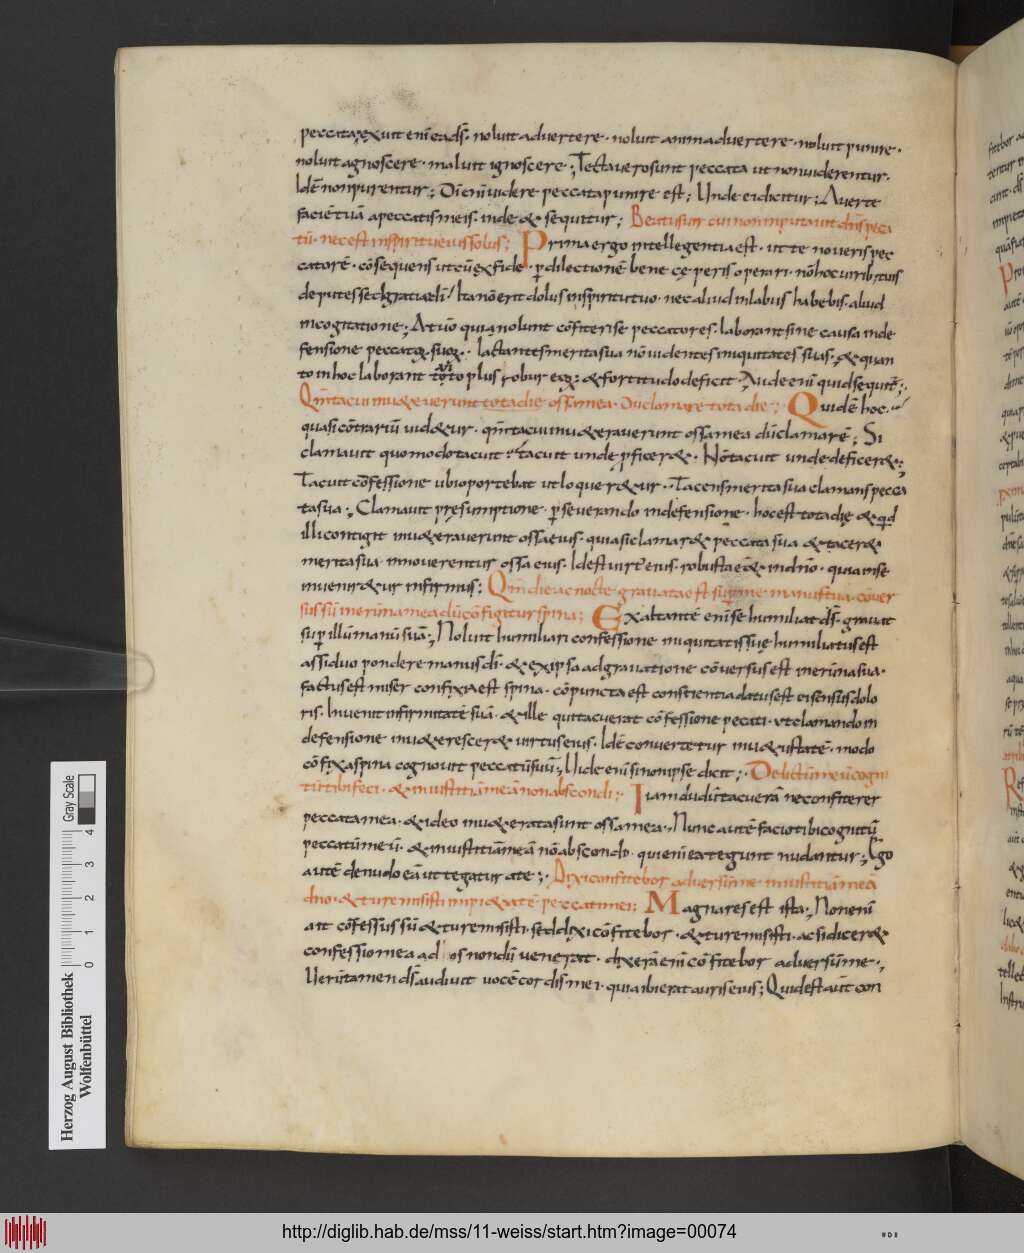 peccata, exuit eni eads̄. noluit aduertere. noluit animaduertere. noluit punire.
noluit agnoscere. maluit ignoscere; Tecta uero sunt peccata ut non uiderentur.
Idē non punirentur; Dī enī uidere peccata punire est; Unde ei dicitur; Auerte
faciē tuā a peccatis meis. inde & sequitur; Beatus uir cui non imputauit dn̄s pecca
tū. nec est in spiritu eius dolus; Prima ergo intellegentia est. ut te noueris pec
catorē. cōsequens ut cū ex fide ꝑ dilectionē bene cęperis operari. nō hoc uirib; tuis
deputes sed gratiae dī / Ita nō erit dolus in spiritu tuo. nec aliud in labiis habebis. aliud
in cogitatione; At uō quia nolunt cōfiteri se peccatores. laborant sine causa in de
fensione peccatoꝝ suoꝝ. Iactantes merita sua nō uidentes iniquitates suas, & quan
to in hoc laborant tāto plus robur eoꝝ & fortitudo deficit. Aude enī quid sequit̄;
Qm̄ tacui inu&erauerunt ossa mea. Dū clamarē tota die; Quid ē hoc.
quasi cōtrariū uid&ur. qm̄ tacui inu&erauerunt ossa mea dū clamarē; Si
clamauit quomodo tacuit. tacuit unde ꝓficer&. Nō tacuit unde deficer&;
Tacuit cōfessione ubi oportebat ut loquer&ur. Tacens merita sua clamans pecca
ta sua; Clamauit pręsumptione. ꝑseuerando in defensione. hoc est tota die & qd
illi contigit inu&erauerunt ossa eius. quasi clamar& peccata sua & tacer&
merita sua. innouerentur ossa eius. Idest uirt eius. robusta e& in dn̄o. quia in se
inuenir&ur infirmus; Qm̄ die ac nocte grauata est suꝑ me manus tua. cōuer
sus sū in erūna mea dū cōfigitur spina; Exaltantē enī se humiliat ds̄. grauat
suꝑ illū manū suā; Noluit humiliari confessione iniquitatis suę humiliatus est
assiduo pondere manus dī. & ex ipsa adgrauatione cōuersus est in erūna sua.
factus est miser confixa est spina. cōpuncta est conscientia datus est ei sensus dolo
ris. Inuenit infirmitatē suā. & ille qui tacuerat cōfessione pecati. ut clamando in
defensione inu&eresceret uirtus eius. Idē conuertetur in u&ustatē. modo
cōfixa spina cognouit peccatū suū; Uide enī si non ipse dicit; Delictū meū cogni
tū tibi feci. & iniustitiā meā non abscondi; Iam dudū tacuerā ne confiterer
peccata mea. & ideo inu&erata sunt ossa mea; Nunc autē facio tibi cognitū
peccatū meū. & iniustitiā meā nō abscondi. qui enī ea tegunt nudantur; Ego
autē denudo eā ut tegatur a te; Dixi confitebor aduersū me iniustitiā meā
dn̄o. & tu remisisti impi&atē peccati mei; Magna res est ista; Non enī
ait cōfessus sū & tu remisisti. sed dixi cōfitebor. & tu remisisti. ac si dicer&
confessio mea ad os nondū uenerat. dixerā enī cōfitebor aduersū me;
Uerūtamen ds̄ audiuit uocē cordis mei. quia ibi erat auris eius; Quid est aūt con
Herzog August Bibliothek
Wolfenbüttel
Gray Scale
0 1 2 3 4
http://diglib.hab.de/mss/11-weiss/start.htm?image=00074